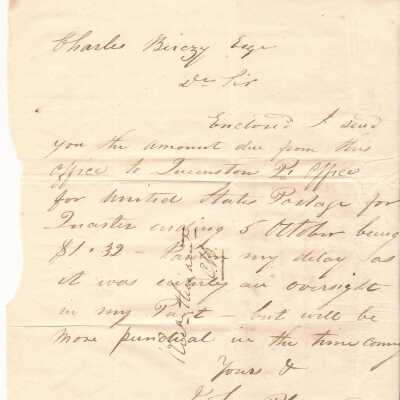 Charles Birczy Esqr
Dr Sir
Enclos'd I send
you the amount due from this
office to Queenston Pt Office
for United States Postage for
Quarter ending 5 October being
$1.32 - Pardon my delay as
it was entirely an oversight
in my Part - but will be
more punctual in the time coming
Yours &